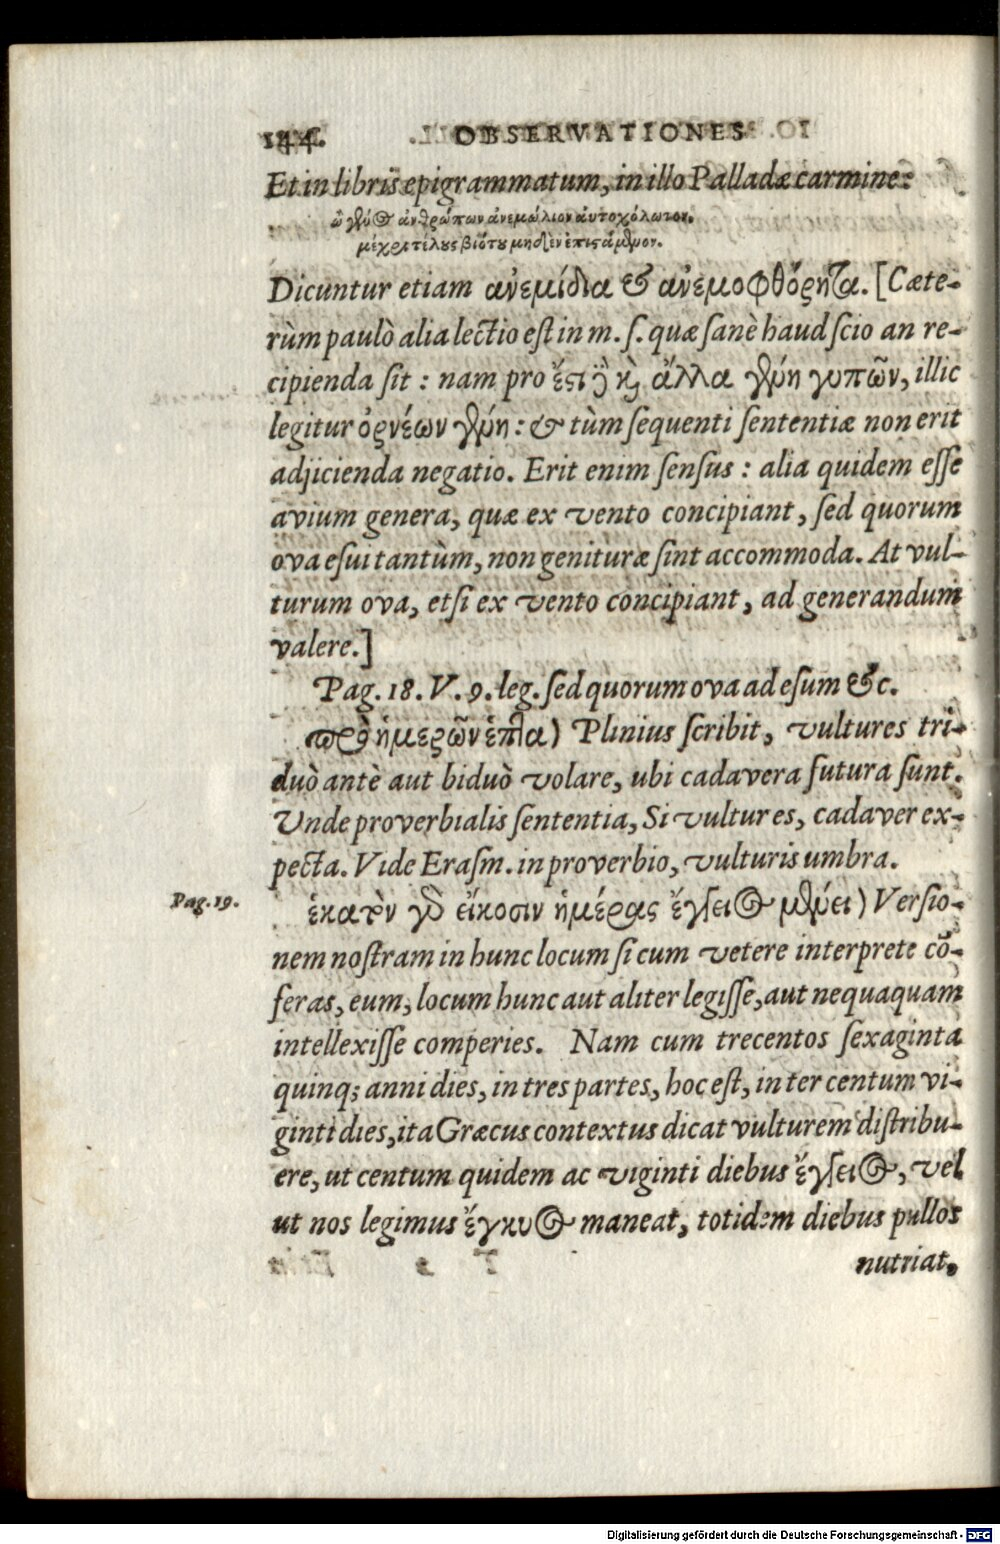 144. OBSERVATIONES
Et in libris epigrammatum, in illo Palladæ carmine:
ὦ γένος ἀνθρώπων ἀνεμώλιον αὐτοχόλωτον.
μέχρι τέλους βιότου μηδὲν ἐπιστάμενον.
Dicuntur etiam ἀνεμίδια & ἀνεμοφθόρητα. [Cæte-
rùm paulò alia lectio est in m. ſ. quæ ſanè haud ſcio an re-
cipienda ſit : nam pro ἔστι δὲ καὶ ἄλλα γένη γυπῶν, illic
legitur ὀρνέων γένη : & tùm ſequenti ſententiæ non erit
adjicienda negatio. Erit enim ſenſus : alia quidem eſſe
avium genera, quæ ex vento concipiant, ſed quorum
ova eſui tantùm, non genituræ ſint accommoda. At vul-
turum ova, etſi ex vento concipiant, ad generandum
valere.]
Pag. 18. V. 9. leg. ſed quorum ova ad eſum &c.
πρὸ ἡμερῶν ἑπτα) Plinius ſcribit, vultures tri-
duò antè aut biduò volare, ubi cadavera futura ſunt.
Vnde proverbialis ſententia, Si vultur es, cadaver ex-
pecta. Vide Eraſm. in proverbio, vulturis umbra.
Pag. 19.
ἑκατὸν γὰρ εἴκοσιν ἡμέρας ἔγγειος μένει) Verſio-
nem noſtram in hunc locum ſi cum vetere interprete cō-
feras, eum, locum hunc aut aliter legiſſe, aut nequaquam
intellexiſſe comperies. Nam cum trecentos ſexaginta
quinq; anni dies, in tres partes, hoc eſt, in ter centum vi-
ginti dies, ita Græcus contextus dicat vulturem diſtribu-
ere, ut centum quidem ac viginti diebus ἔγγειος, vel
ut nos legimus ἔγκυος maneat, totidem diebus pullos
nutriat,
Digitalisierung gefördert durch die Deutsche Forschungsgemeinschaft - DFG